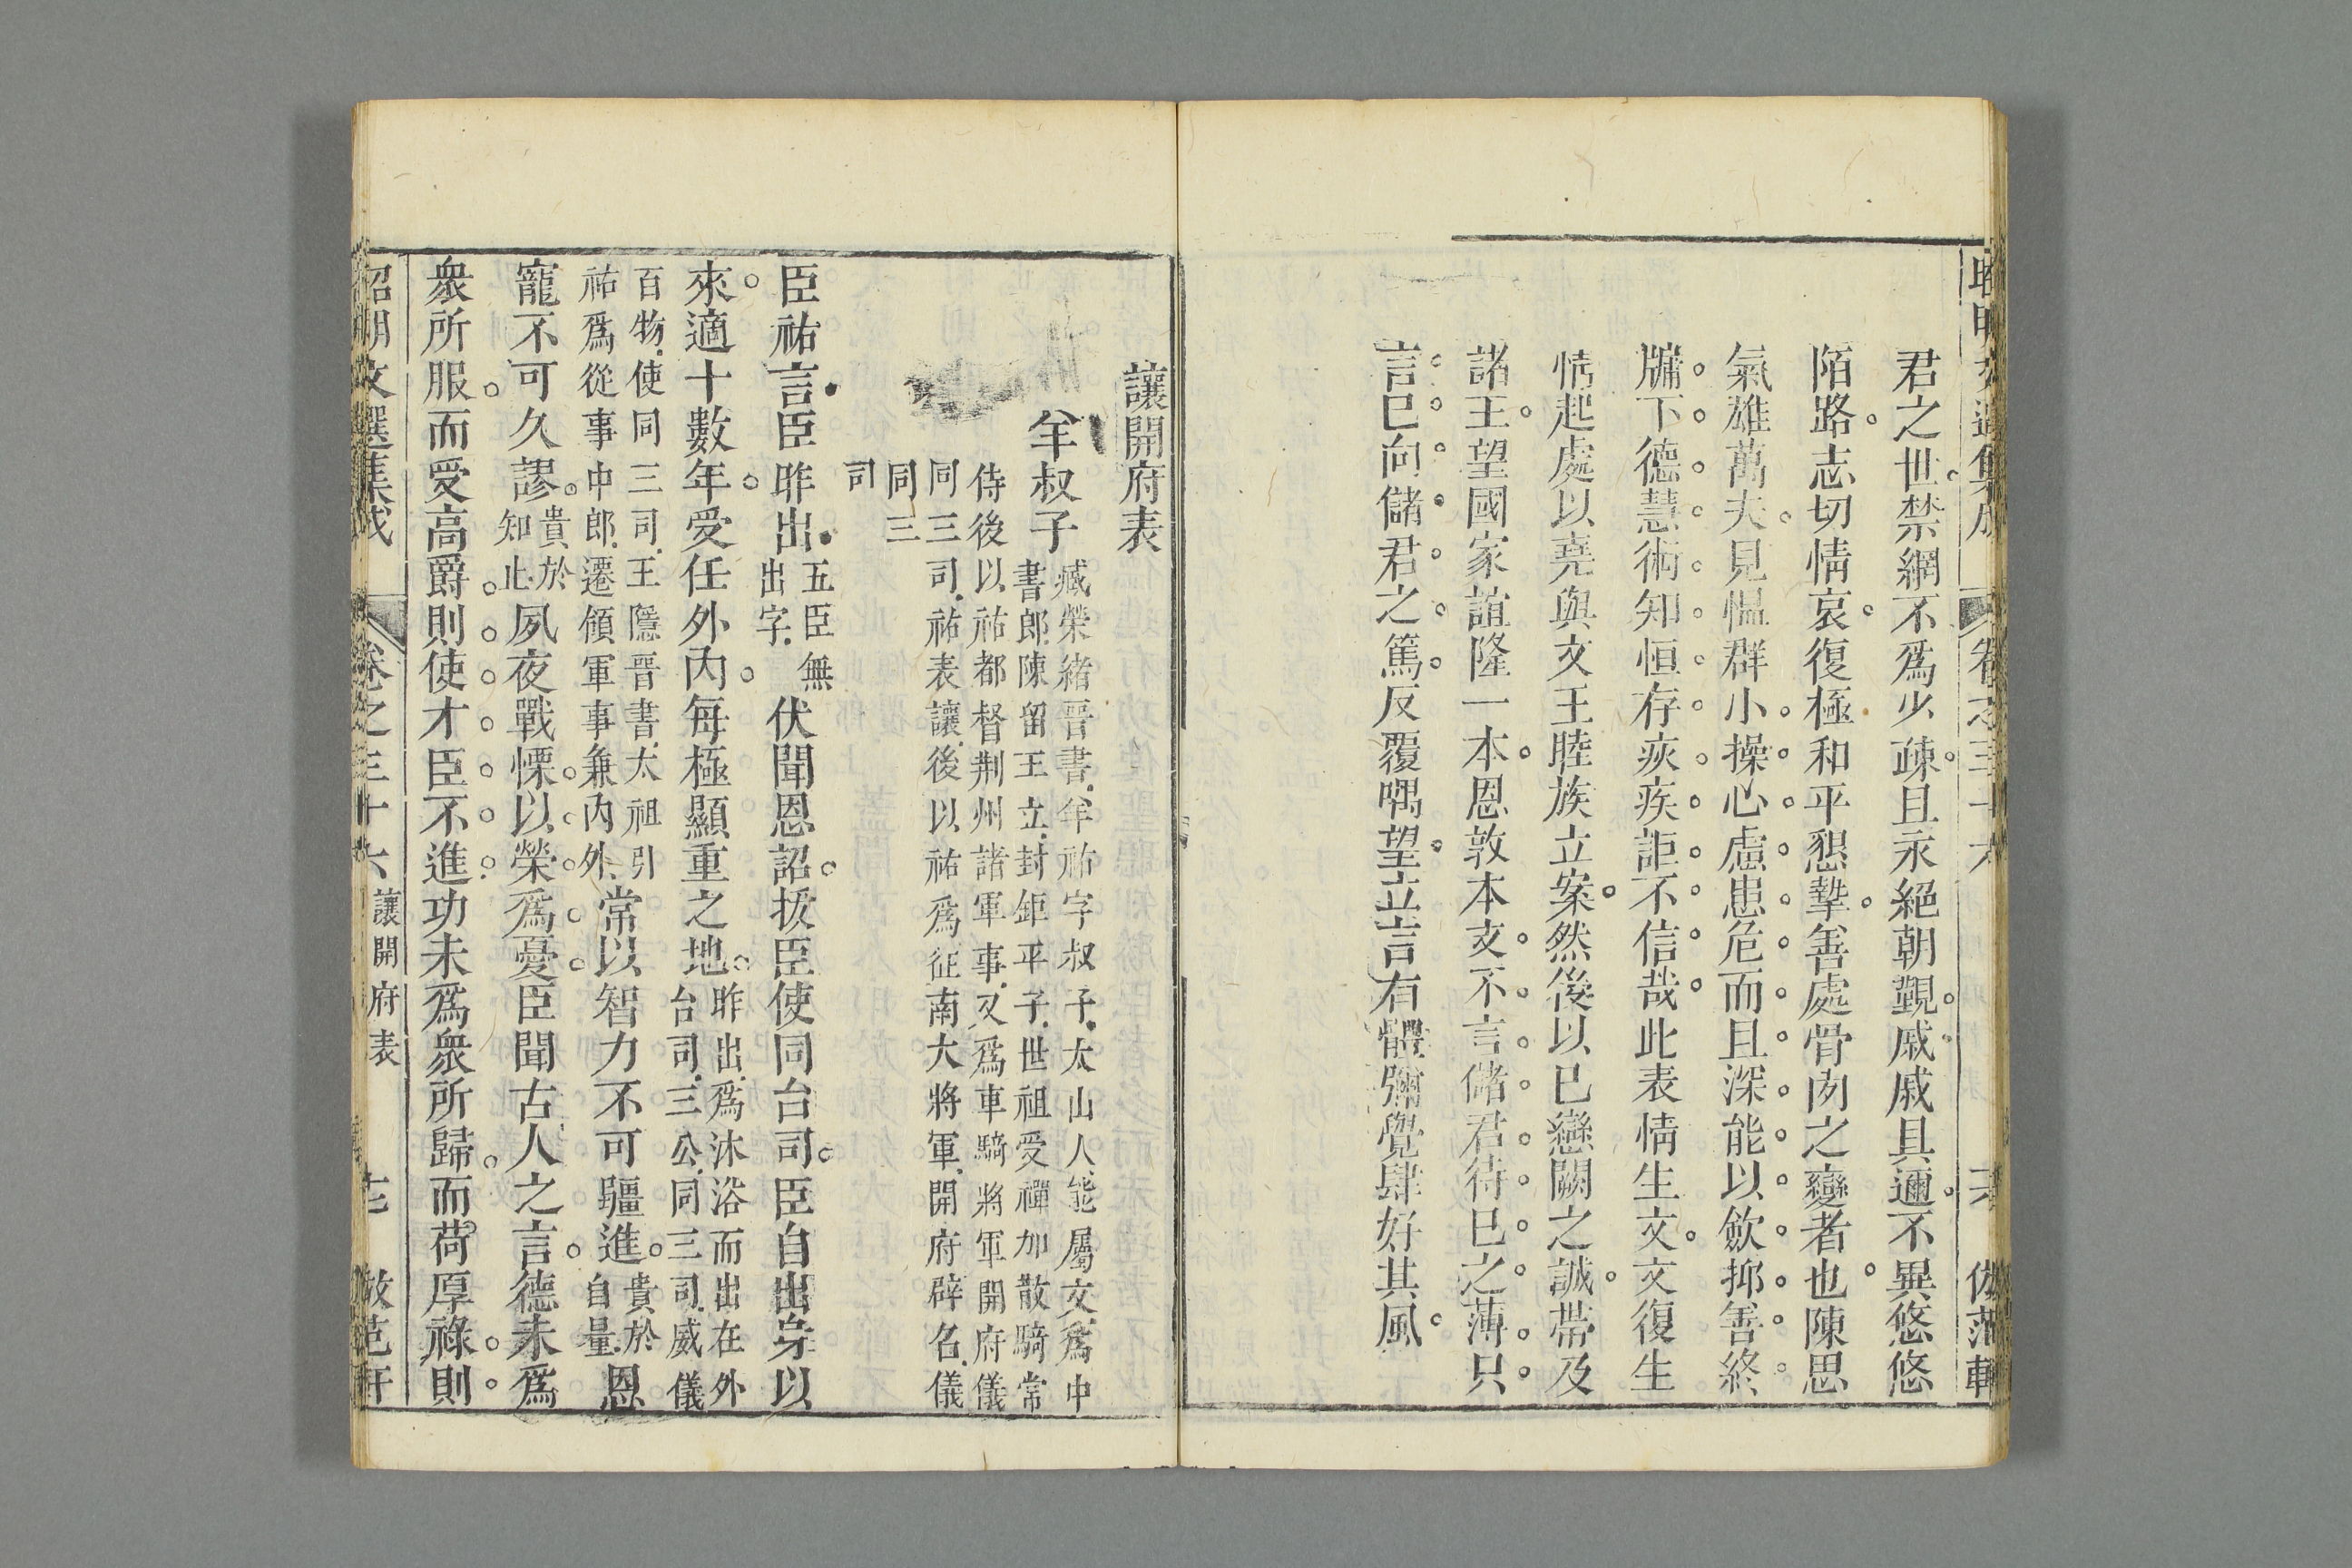 君之世禁網不爲少疎且永絕朝覲戚戚具邇不異悠悠
陌路志切情哀復極和平懇摯善處骨肉之變者也陳思
氣雄萬夫見慍群小操心慮患危而且深能以斂抑善終
牖下德慧術知恒存疢疾詎不信哉此表情生文文復生
情起處以堯與文王睦族立案然後以已戀闕之誠帶及
諸王望國家誼隆一本恩敦本支不言儲君待已之薄只
言已向儲君之篤反覆喁望立言有體彌覺肆好其風
讓開府表
羊叔子
臧榮緒晉書羊祜字叔子太山人能屬文爲中
書郎陳留王立封鉅平子世祖受禪加散騎常
侍後以祜都督荆州諸軍事又爲車騎將軍開府儀
同三司祜表讓後以祜爲征南大將軍開府辟名儀
同三
司
臣祜言臣昨出
五臣無
出字
伏聞恩詔拔臣使同台司臣自出身以
來適十數年受任外內每極顯重之地
昨出爲沐浴而出在外
台司三公同三司威儀
百物使同三司王隱晉書太祖引
祜爲從事中郎遷領軍事兼內外
常以智力不可彊進
貴於
自量
恩
寵不可久謬
貴於
知止
夙夜戰慄以榮爲憂臣聞古人之言德未爲
衆所服而受高爵則使才臣不進功未爲衆所歸而荷厚祿則
昭明文選集成
卷之三十六
讓開府表
七
倣范軒